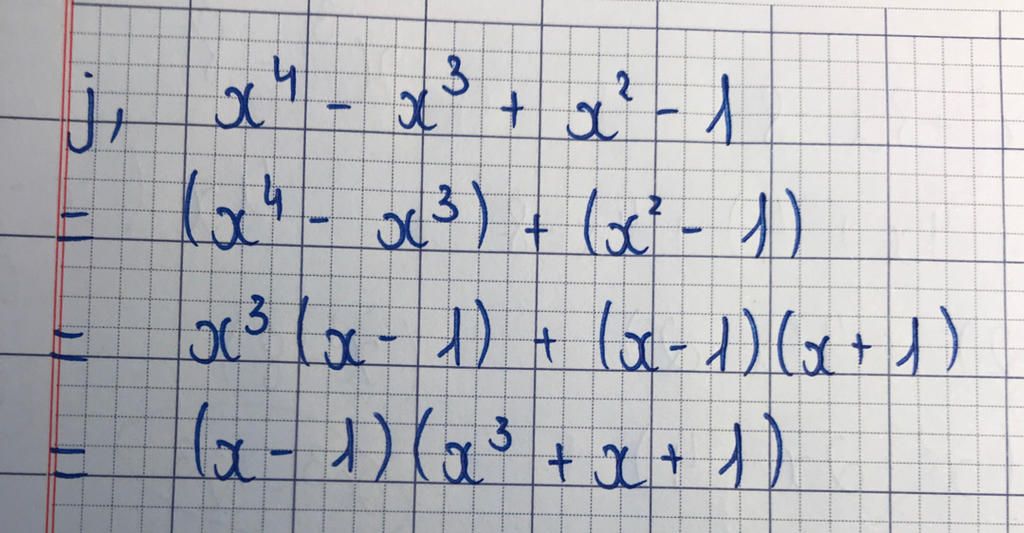 j, x⁴ - x³ + x² - 1
= (x⁴ - x³) + (x² - 1)
= x³ (x - 1) + (x - 1)(x + 1)
= (x - 1)(x³ + x + 1)